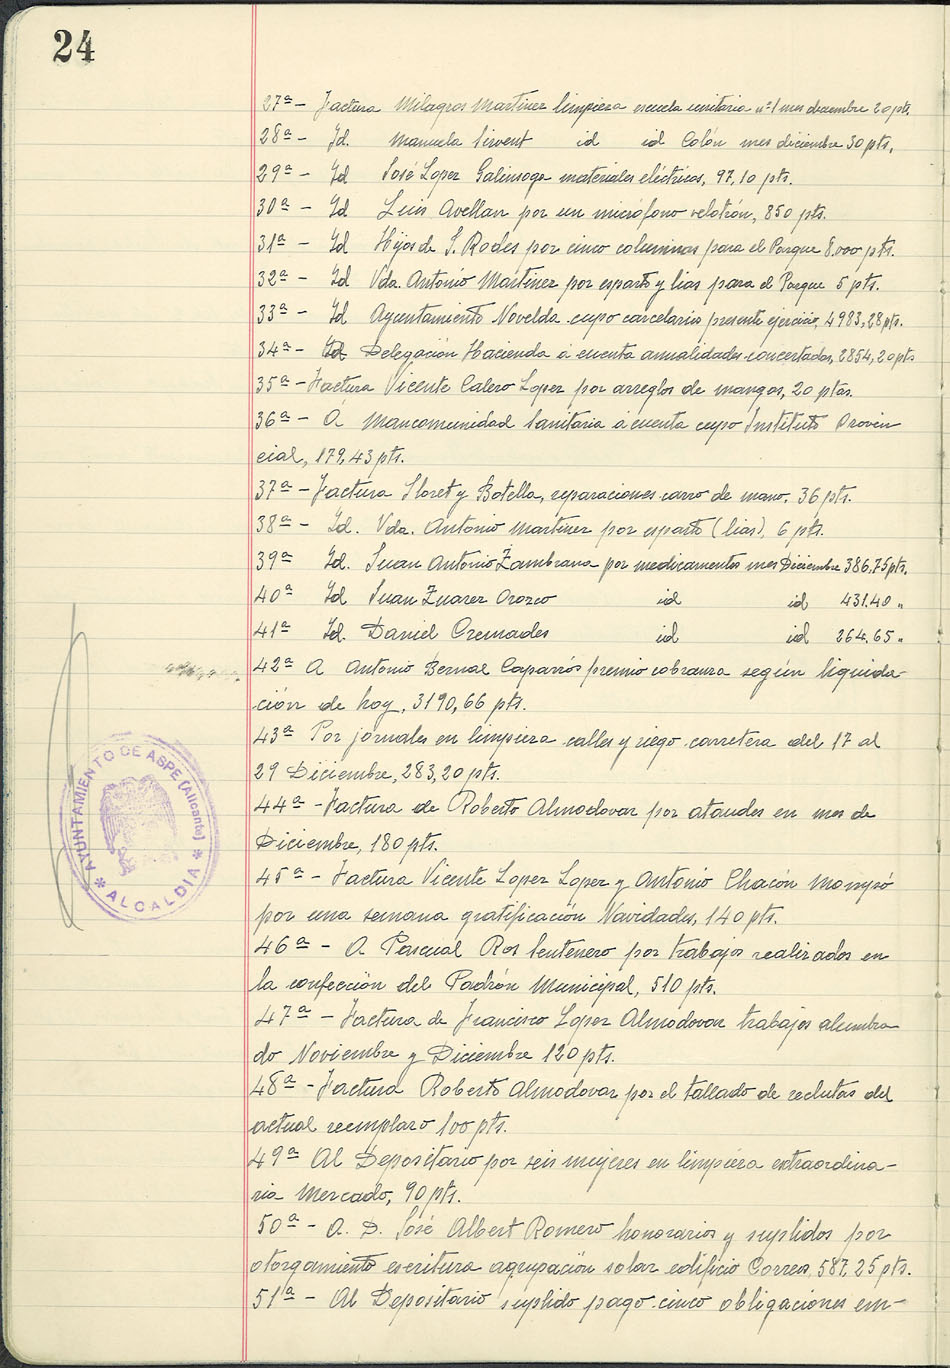 24
27ª - Factura Milagros Martinez limpieza escuela unitaria nº 1 mes diciembre 20 pts.
28ª - Id. Manuela Sirvent id id Colón mes diciembre 30 pts.
29ª - Id José Lopez Galinsoga materiales eléctricos, 97,10 pts.
30ª - Id Luis Avellan por un micrófono velotrón, 850 pts.
31ª - Id Hijos de S. Rodes por cinco columnas para el Parque 8.000 pts.
32ª - Id Vda. Antonio Martinez por esparto y lias para el Parque 5 pts.
33ª - Id Ayuntamiento Novelda cupo carcelario presente ejercicio, 4983,28 pts.
34ª - Id Delegación Hacienda á cuenta anualidades concertadas, 2854,20 pts
35ª - Factura Vicente Calero Lopez por arreglos de mangas, 20 ptas.
36ª - A Mancomunidad Sanitaria á cuenta cupo Instituto Provin
cial, 179,43 pts.
37ª - Factura Lloret y Botella, reparaciones carro de mano, 36 pts.
38ª - Id. Vda. Antonio Martinez por esparto (lias), 6 pts.
39ª Id. Juan Antonio Zambrana por medicamentos mes Diciembre 386,75 pts.
40ª Id Juan Zuarez Orozco id id 431.40 "
41ª Id. Daniel Cremades id id 264.65 "
42ª A Antonio Bernal Caparrós premio cobranza según liquida-
ción de hoy, 3190,66 pts.
43ª Por jornales en limpieza calles y riego carretera del 17 al
29 Diciembre, 283,20 pts.
44ª - Factura de Roberto Almodovar por ataudes en mes de
Diciembre, 180 pts.
45ª - Factura Vicente Lopez Lopez y Antonio Chacón Mompó
por una semana gratificación Navidades, 140 pts.
46ª - A Pascual Ros Sentenero por trabajos realizados en
la confección del Padrón Municipal, 510 pts.
47ª - Factura de Francisco Lopez Almodovar trabajos alumbra
do Noviembre y Diciembre 120 pts.
48ª - Factura Roberto Almodovar por el tallado de reclutas del
actual reemplazo 100 pts.
49ª Al Depositario por seis mujeres en limpieza extraordina-
ria Mercado, 90 pts.
50ª - A. D. José Albert Romero honorarios y suplidos por
otorgamiento escritura agrupación solar edificio Correos, 587,25 pts.
51ª - Al Depositario suplido pago cinco obligaciones em-
AYUNTAMIENTO DE ASPE (Alicante)
* ALCALDIA *